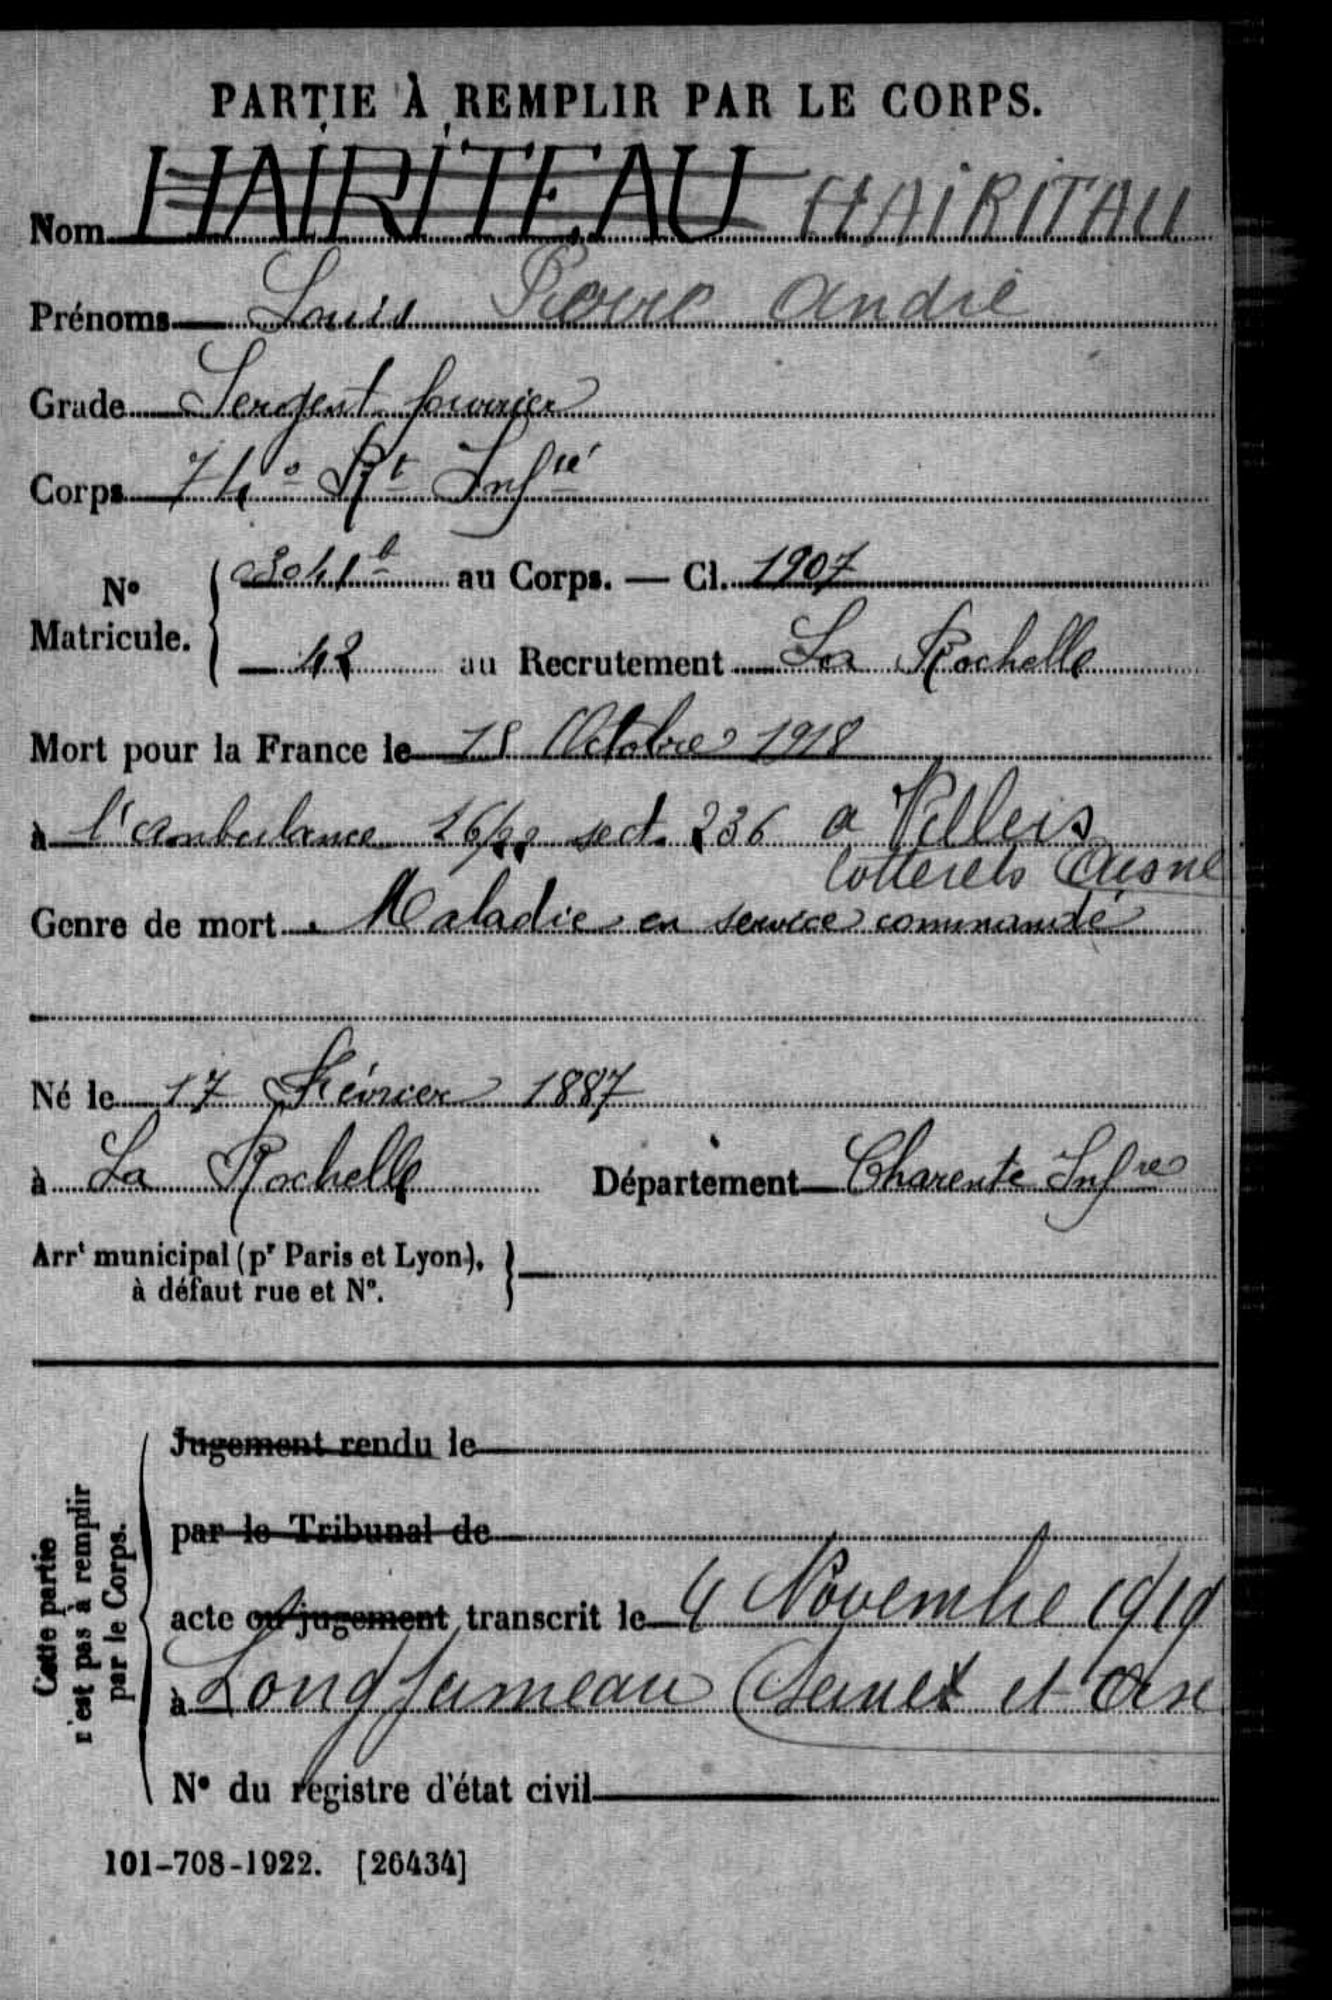 PARTIE À REMPLIR PAR LE CORPS.
Nom HAIRITEAU HAIRITAU
Prénoms Louis Pierre André
Grade Sergent fourrier
Corps 74e Rt Infie
No Matricule. 3041 b au Corps. — Cl. 1907
42 au Recrutement La Rochelle
Mort pour la France le 18 Octobre 1918
à l'ambulance 16/22 sect. 236 a Villers
Cotterets Aisne
Genre de mort Maladie en service commandé
Né le 17 Février 1887
à La Rochelle Département Charente Infre
Arrt municipal (pr Paris et Lyon),
à défaut rue et No.
Cette partie
n'est pas à remplir
par le Corps.
Jugement rendu le
par le Tribunal de
acte ou jugement transcrit le 4 Novembre 1919
à Longjumeau (Seine et Oise
No du registre d'état civil
101-708-1922. [26434]